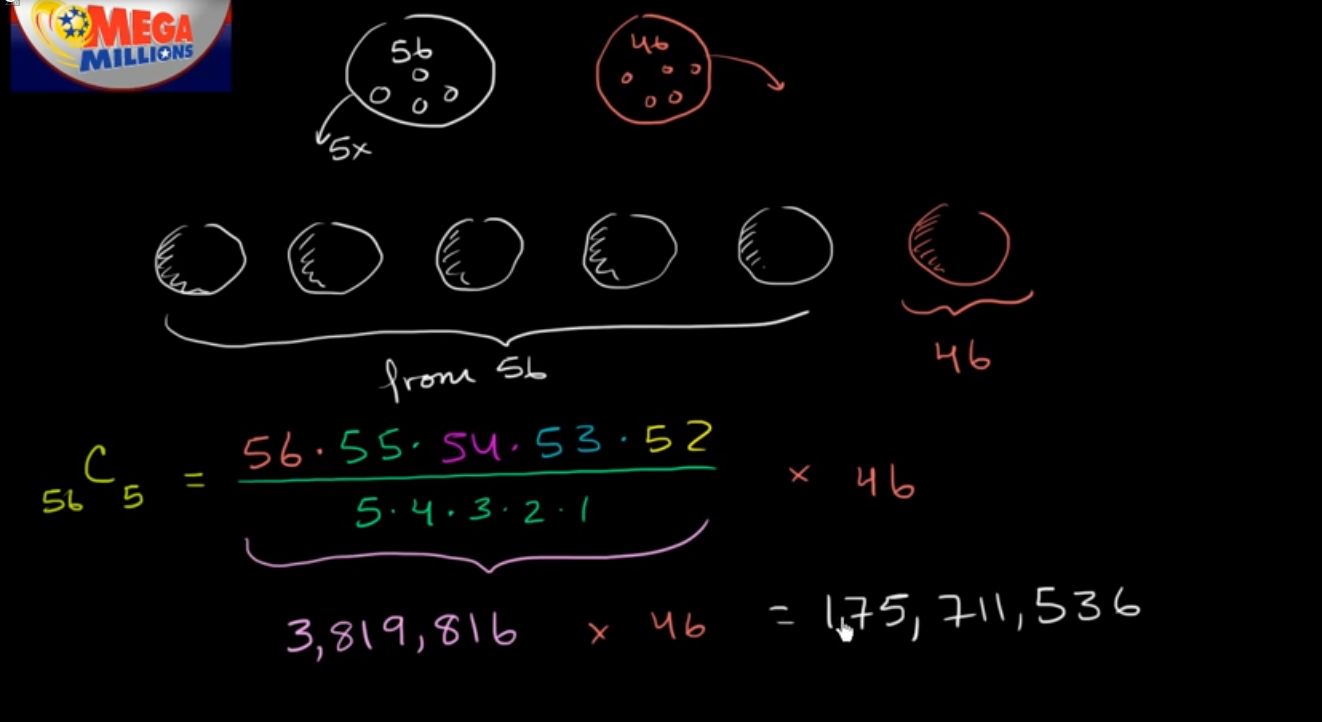 MEGA
MILLIONS
56
46
5x
from 56
46
56C5 = 56 · 55 · 54 · 53 · 52 × 46
5 · 4 · 3 · 2 · 1
3,819,816 × 46 = 175,711,536